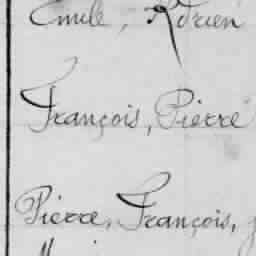 Emile, Adrien
François, Pierre
Pierre, François,